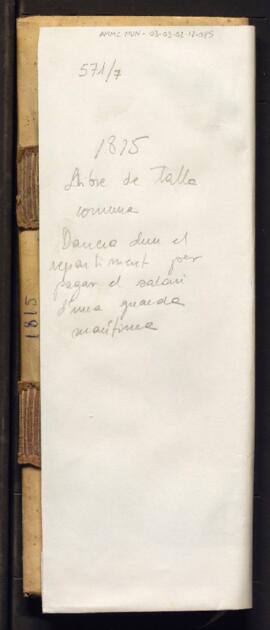 AMMZ MUN - 03-03-02-12-085
571/7
1815
Llibre de Talla
comuna
Darrera d'un el
repartiment per
pagar el salari
d'una guarda
marítima
1815